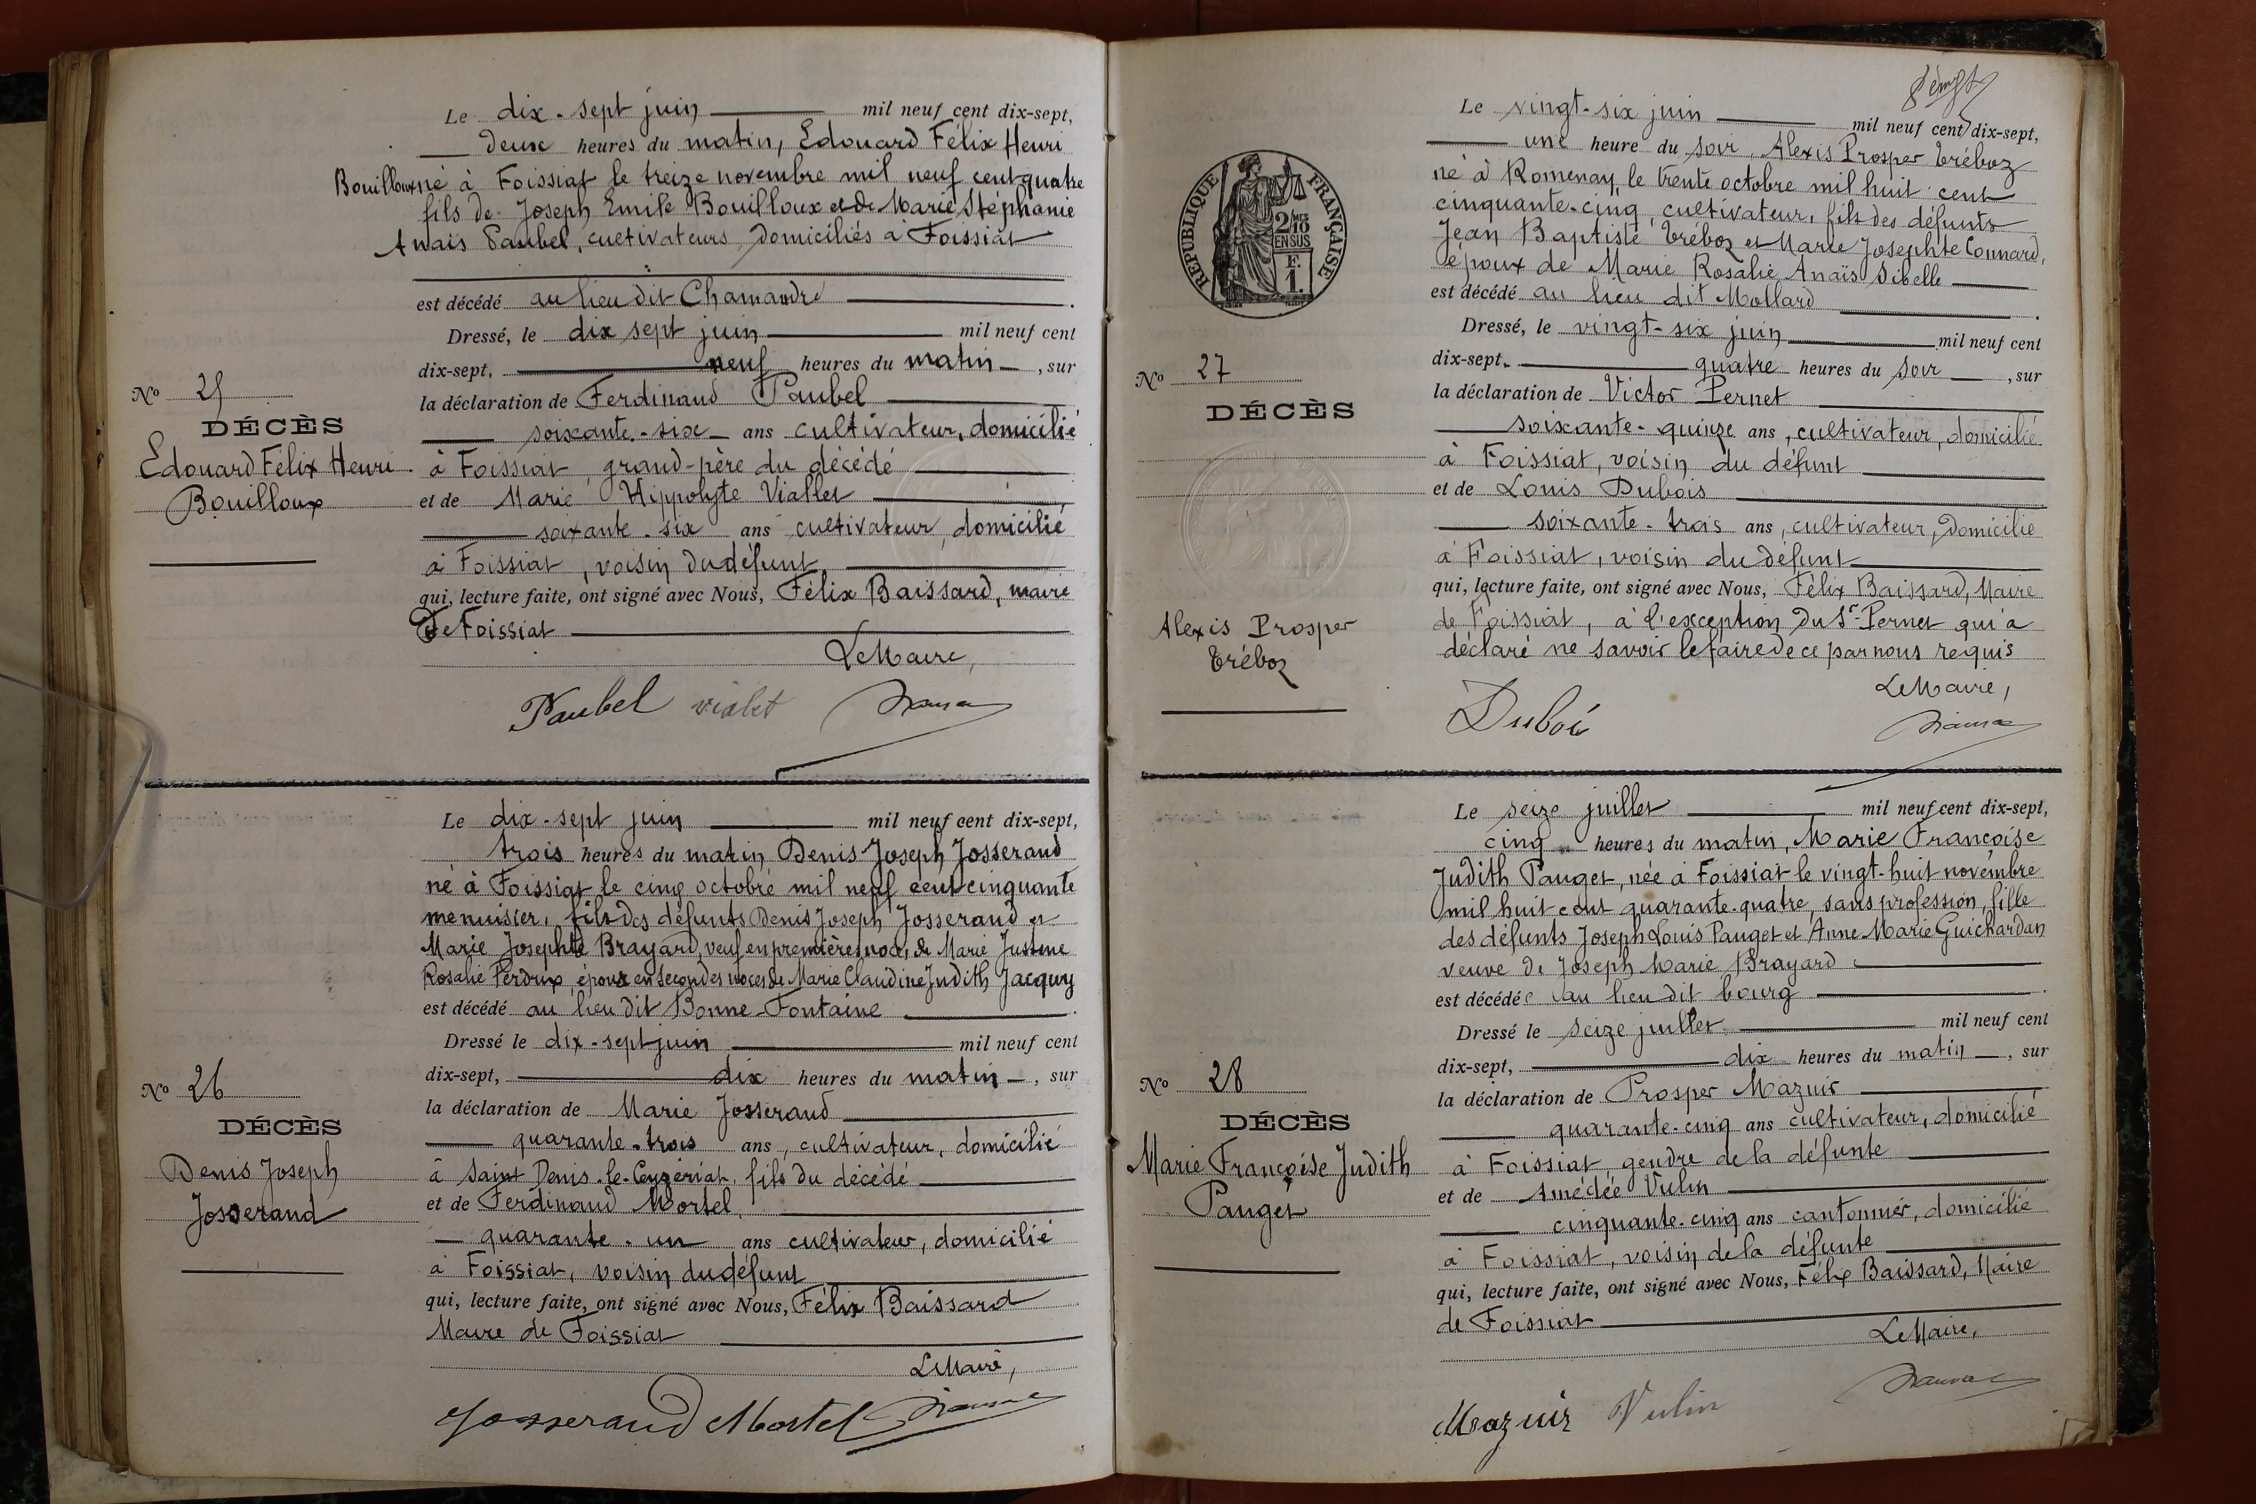 Le dix-sept juin mil neuf cent dix-sept,
deux heures du matin, Edouard Félix Henri
Bouilloux né à Foissiat le treize novembre mil neuf cent quatre
fils de Joseph Emile Bouilloux et de Marie Stéphanie
Anaïs Paubel, cultivateurs, domiciliés à Foissiat
est décédé au lieu dit Chamandré
Dressé, le dix sept juin mil neuf cent
dix-sept, neuf heures du matin, sur
la déclaration de Ferdinand Paubel
soixante-six ans cultivateur, domicilié
à Foissiat, grand-père du décédé
et de Marie Hippolyte Viallet
soixante-six ans cultivateur, domicilié
à Foissiat, voisin du défunt,
qui, lecture faite, ont signé avec Nous, Félix Baissard, maire
de Foissiat
Le Maire,
Paubel violet
No 25
DÉCÈS
Edouard Félix Henri
Bouilloux
Le dix-sept juin mil neuf cent dix-sept,
trois heures du matin Denis Joseph Josserand
né à Foissiat le cinq octobre mil neuf cent cinquante
menuisier, fils des défunts Denis Joseph Josserand et
Marie Josephte Brayard, veuf en premières noces, de Marie Justine
Rosalie Perdrix, époux en secondes noces de Marie Claudine Judith Jacquy
est décédé au lieu dit Bonne-Fontaine
Dressé le dix-sept juin mil neuf cent
dix-sept, dix heures du matin, sur
la déclaration de Marie Josserand
quarante-trois ans, cultivateur, domicilié
à Saint Denis-le-Ceyzériat, fils du décédé
et de Ferdinand Mortel,
quarante-un ans cultivateur, domicilié
à Foissiat, voisin du défunt
qui, lecture faite, ont signé avec Nous, Félix Baissard
Maire de Foissiat
Le Maire,
Josserand Mortel
No 26
DÉCÈS
Denis Joseph
Josserand
RÉPUBLIQUE FRANÇAISE
2/10
EN SUS
F.
1.
Le vingt-six juin mil neuf cent dix-sept,
une heure du soir, Alexis Prosper Tréboz
né à Romenay, le trente octobre mil huit cent
cinquante-cinq, cultivateur, fils des défunts
Jean Baptiste Tréboz et Marie Josephte Connard,
époux de Marie Rosalie Anaïs Sibelle
est décédé au lieu dit Mollard
Dressé, le vingt-six juin mil neuf cent
dix-sept, quatre heures du soir, sur
la déclaration de Victor Pernet
soixante-quinze ans, cultivateur, domicilié
à Foissiat, voisin du défunt
et de Louis Dubois
soixante-trois ans, cultivateur, domicilié
à Foissiat, voisin du défunt
qui, lecture faite, ont signé avec Nous, Félix Baissard, Maire
de Foissiat, à l'exception du Sr Pernet qui a
déclaré ne savoir le faire de ce par nous requis
Le Maire,
Duboi
No 27
DÉCÈS
Alexis Prosper
Tréboz
Le seize juillet mil neuf cent dix-sept,
cinq heures du matin, Marie Françoise
Judith Pauget, née à Foissiat le vingt-huit novembre
mil huit cent quarante-quatre, sans profession, fille
des défunts Joseph Louis Pauget et Anne Marie Guichardan
veuve de Joseph Marie Brayard
est décédée au lieu dit bourg
Dressé le seize juillet mil neuf cent
dix-sept, dix heures du matin, sur
la déclaration de Prosper Mazuir
quarante-cinq ans cultivateur, domicilié
à Foissiat, gendre de la défunte
et de Amédée Vulin
cinquante-cinq ans cantonnier, domicilié
à Foissiat, voisin de la défunte
qui, lecture faite, ont signé avec Nous, Félix Baissard, Maire
de Foissiat
Le Maire,
Mazuir Vulin
No 28
DÉCÈS
Marie Françoise Judith
Pauget